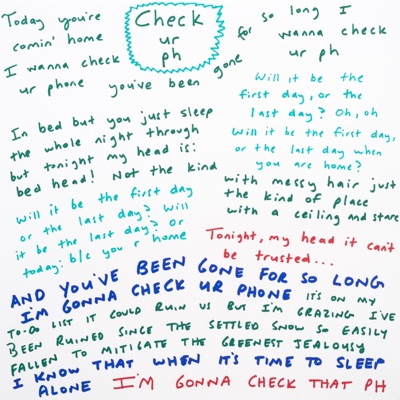 Today you're
comin' home
I wanna check
ur phone you've been gone
Check
ur
ph
for so long I
wanna check
ur ph
Will it be the
first day, or the
last day? Oh, oh
Will it be the first day,
or the last day when
you are home?
In bed but you just sleep
the whole night through
but tonight my head is:
bed head! Not the kind
with messy hair just
the kind of place
with a ceiling and stare
Will it be the first day
or the last day? Will
it be the last day? or
today: b/c you r home
Tonight, my head it can't
be trusted...
AND YOU'VE BEEN GONE FOR SO LONG
I'M GONNA CHECK UR PHONE IT'S ON MY
TO-DO LIST IT COULD RUIN US BUT I'M GRAZING I'VE
BEEN RUINED SINCE THE SETTLED SNOW SO EASILY
FALLEN TO MITIGATE THE GREENEST JEALOUSY
I KNOW THAT WHEN IT'S TIME TO SLEEP
ALONE I'M GONNA CHECK THAT PH